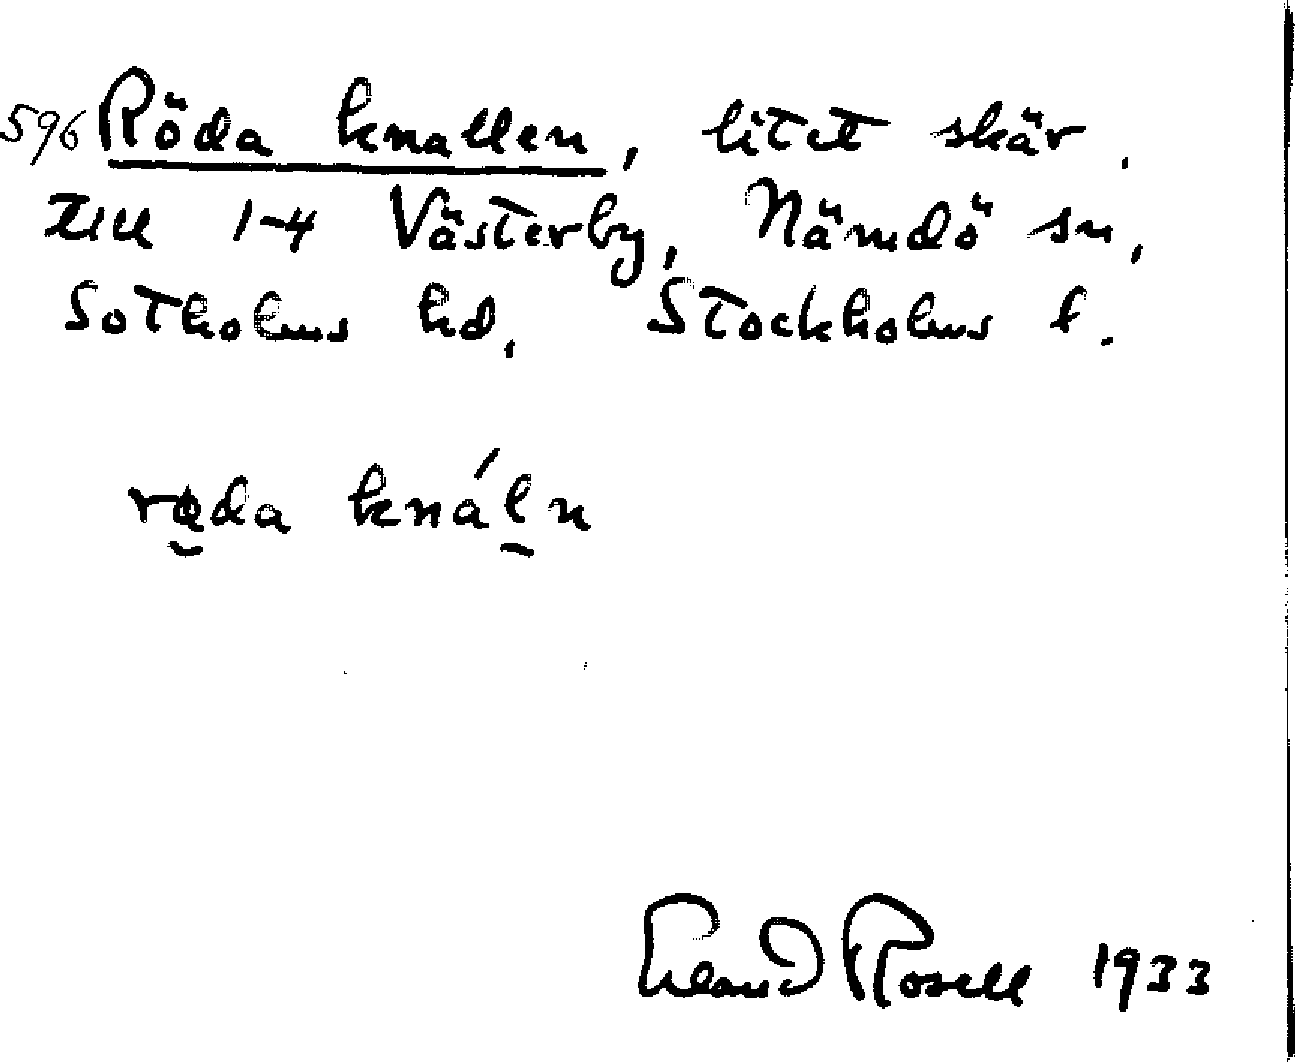 596 Röda knallen, litet skär,
till 1-4 Västerby, Nämdö sn,
Sotholms hd, Stockholms l.
röda knáln
Erland Rosell 1933